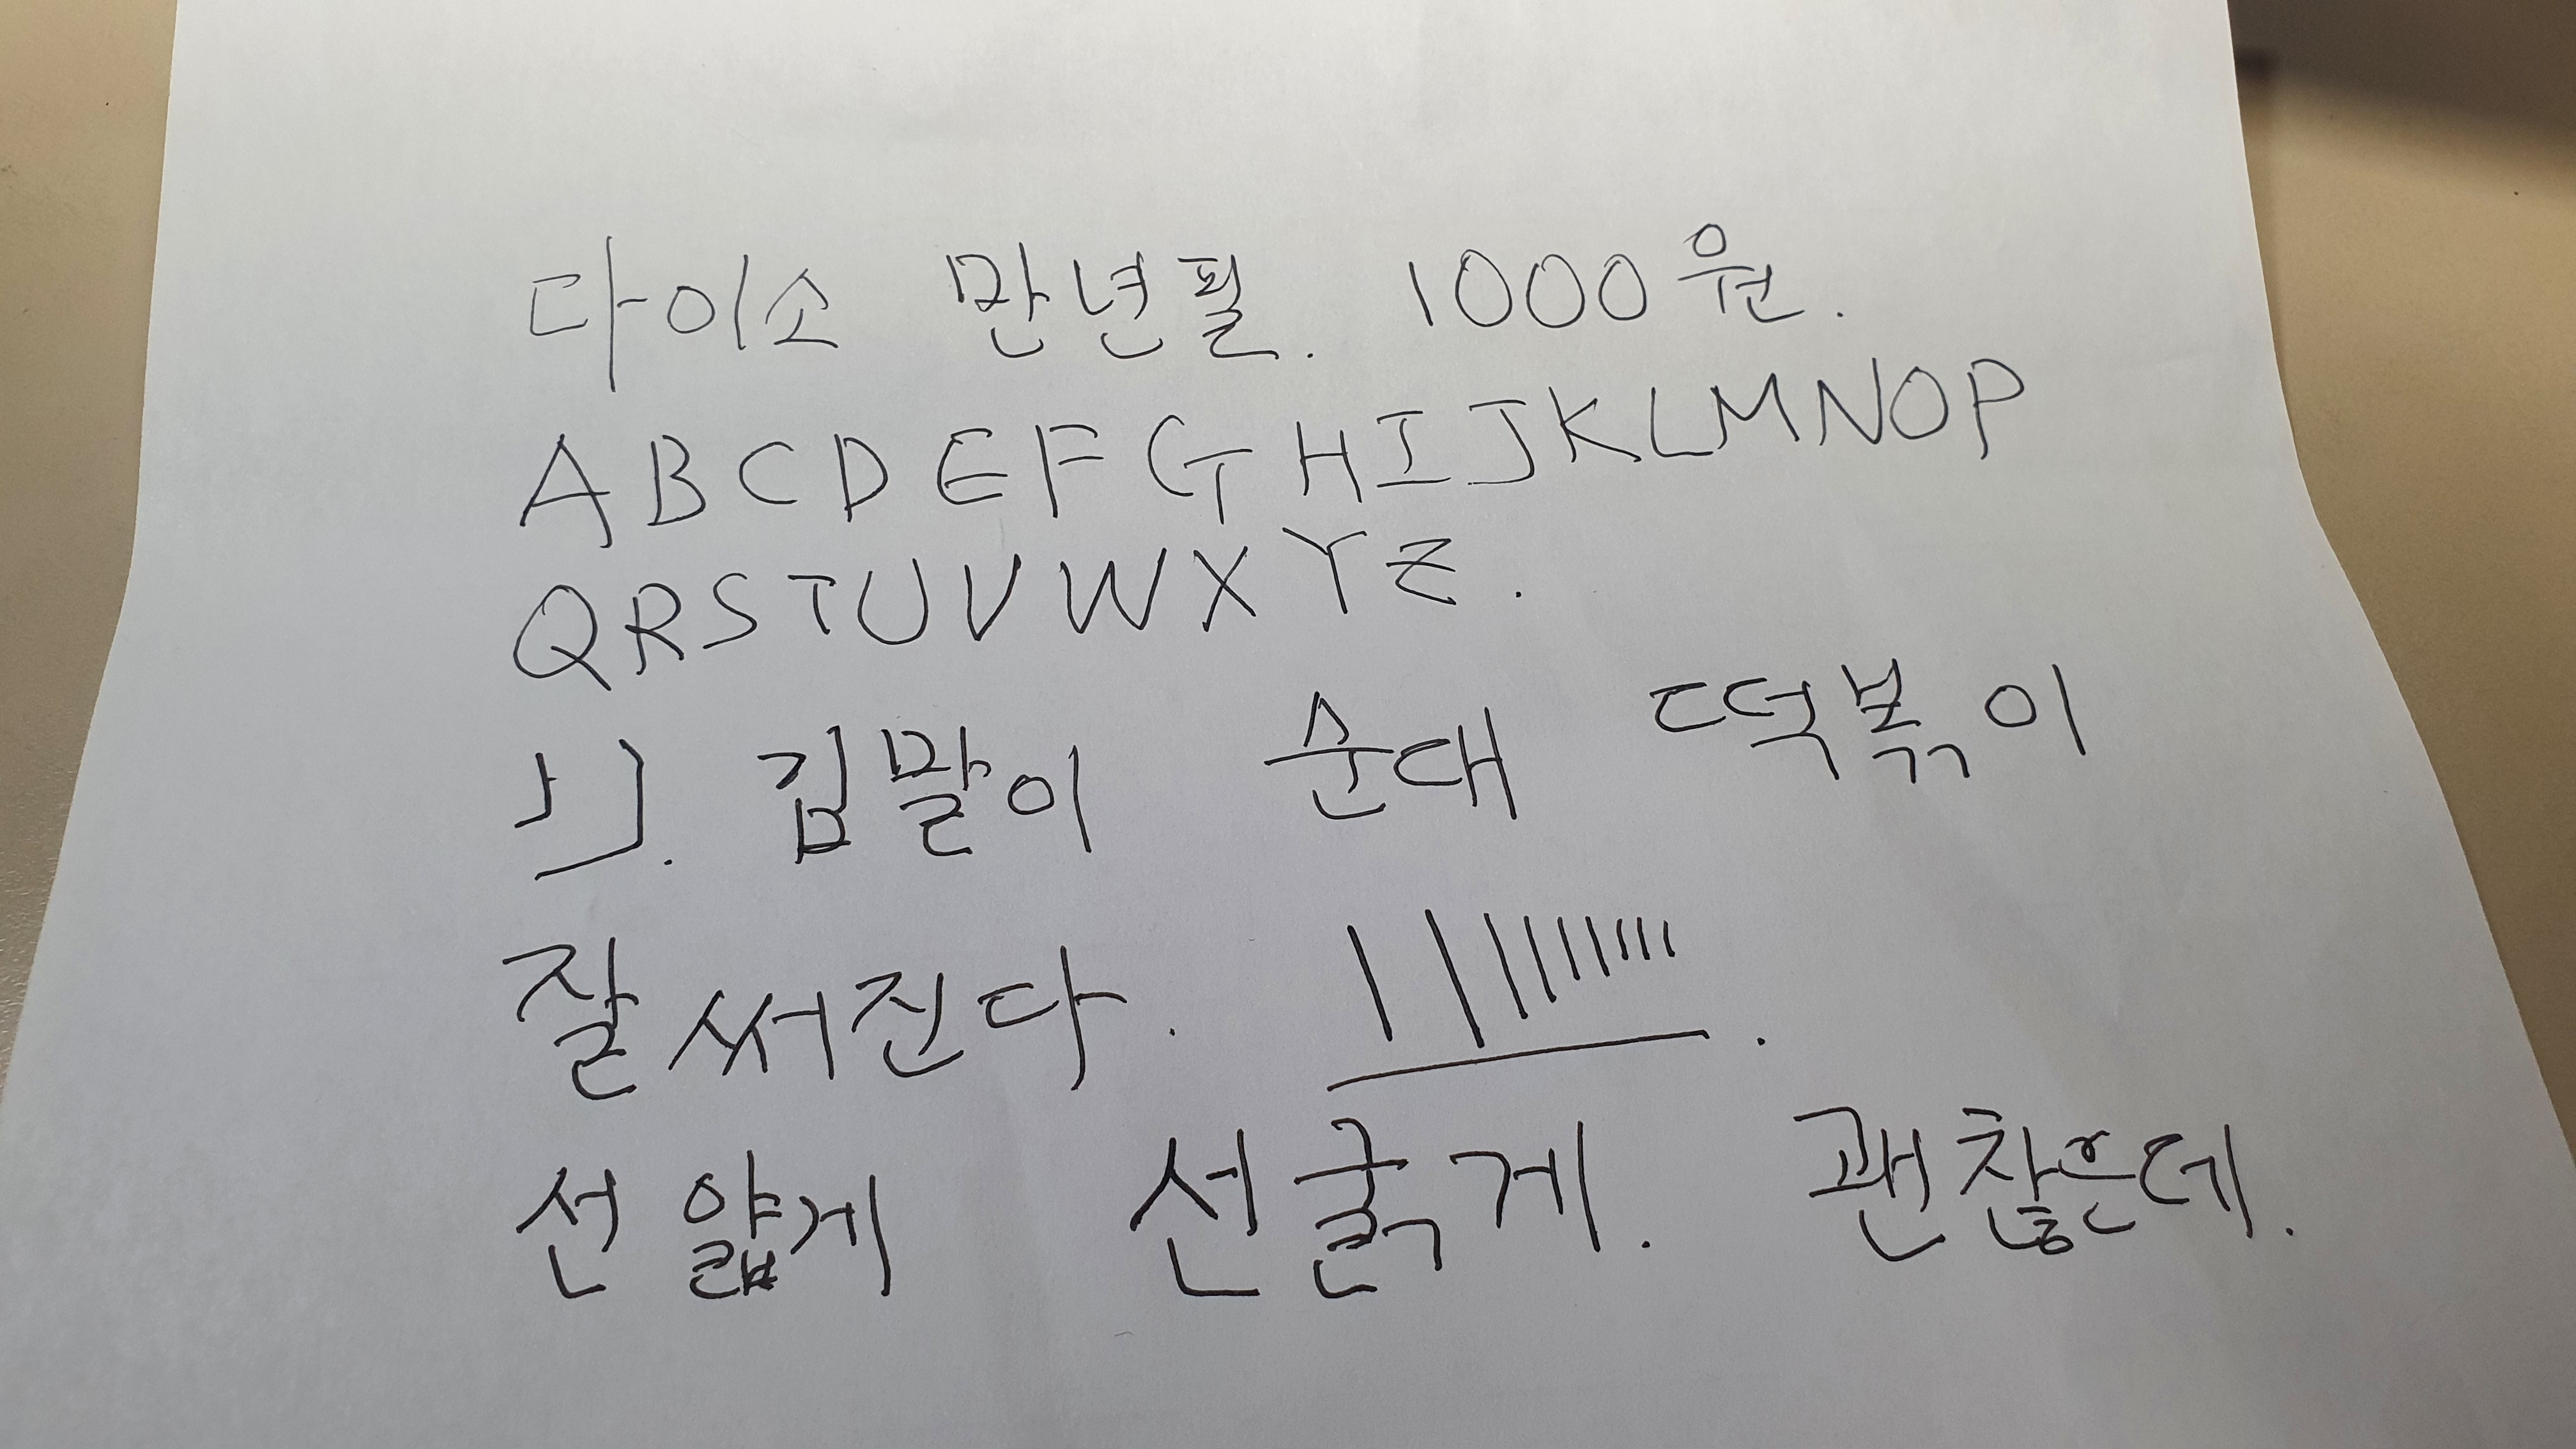 다이소 만년필. 1000원.
A B C D E F G H I J K L M N O P
Q R S T U V W X Y Z .
김말이 순대 떡볶이
잘 써진다.
선 얇게 선 굵게. 괜찮은데.